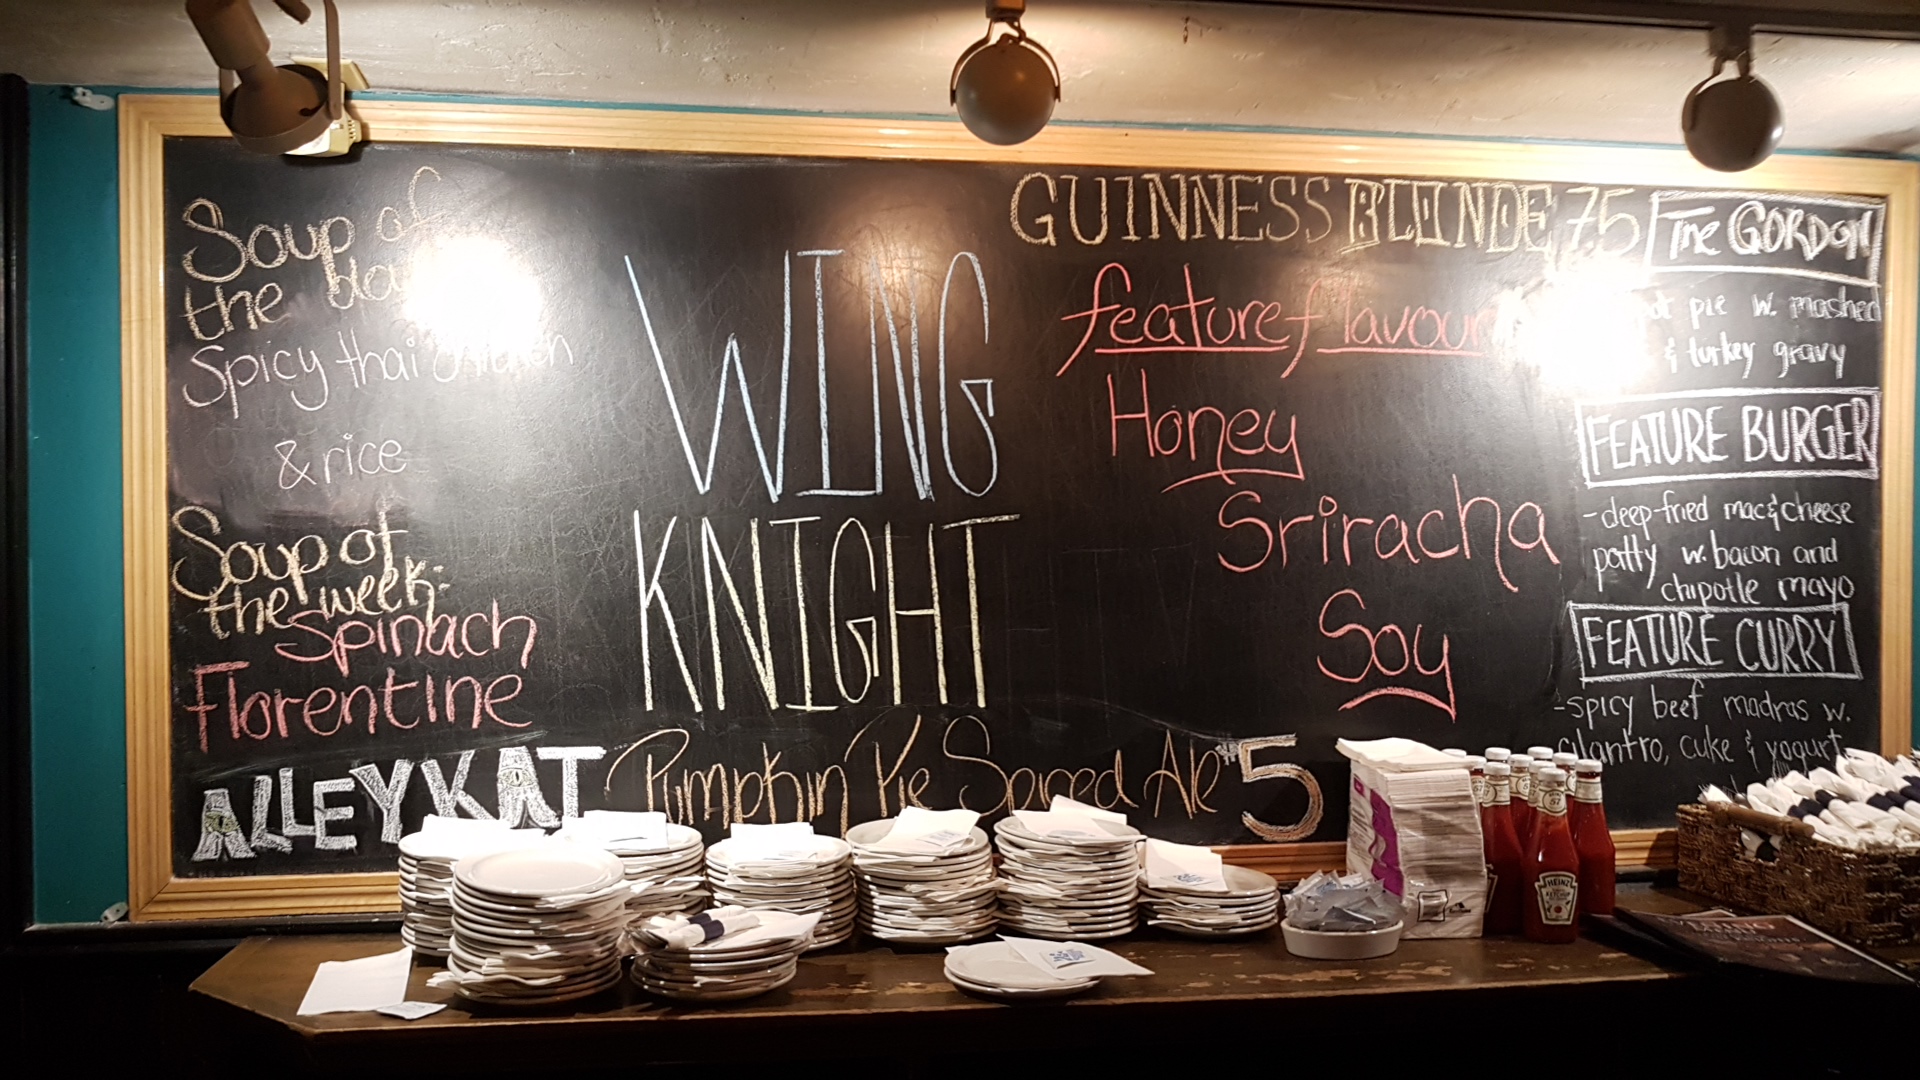 Soup of
the
Spicy thai chicken
& rice
Soup of
the week:
Spinach
Florentine
ALLEYKAT Pumpkin Pie Spiced Ale $5
WING
KNIGHT
GUINNESS BLONDE 75
feature flavour
Honey
Sriracha
Soy
The GORDON
pie w. mashed
& turkey gravy
FEATURE BURGER
- deep-fried mac&cheese
patty w. bacon and
chipotle mayo
FEATURE CURRY
- spicy beef madras w.
cilantro, cuke & yogurt
HEINZ
57